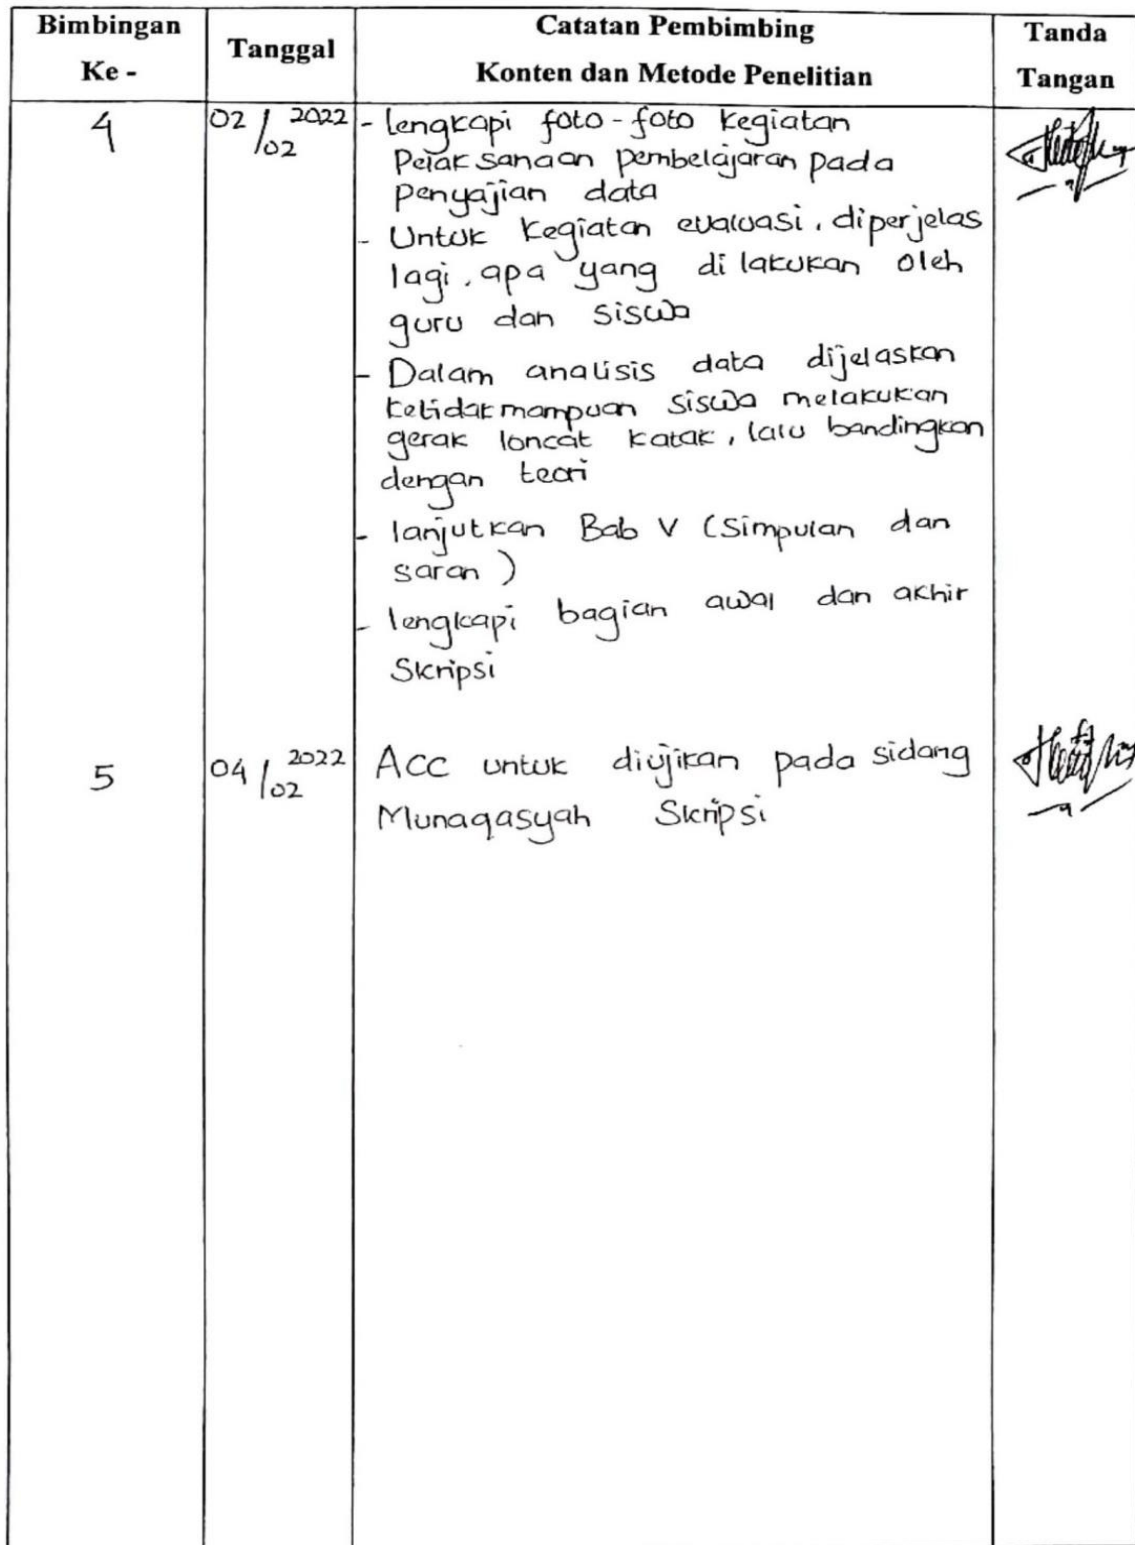 Bimbingan Ke -
Tanggal
Catatan Pembimbing
Konten dan Metode Penelitian
Tanda Tangan
4
02/02 2022
- lengkapi foto-foto kegiatan
Pelaksanaan pembelajaran pada
penyajian data
- Untuk kegiatan evaluasi, diperjelas
lagi, apa yang di lakukan oleh
guru dan siswa
- Dalam analisis data dijelaskan
ketidakmampuan siswa melakukan
gerak loncat katak, lalu bandingkan
dengan teori
- lanjutkan Bab V (Simpulan dan
saran)
- lengkapi bagian awal dan akhir
Skripsi
5
04/02 2022
ACC untuk diujikan pada sidang
Munaqasyah Skripsi